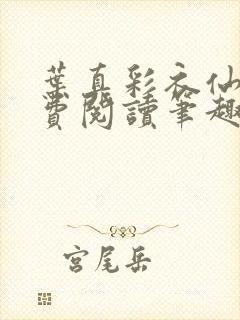 葉真彩衣仙
費閱讀筆趣
宮尾岳